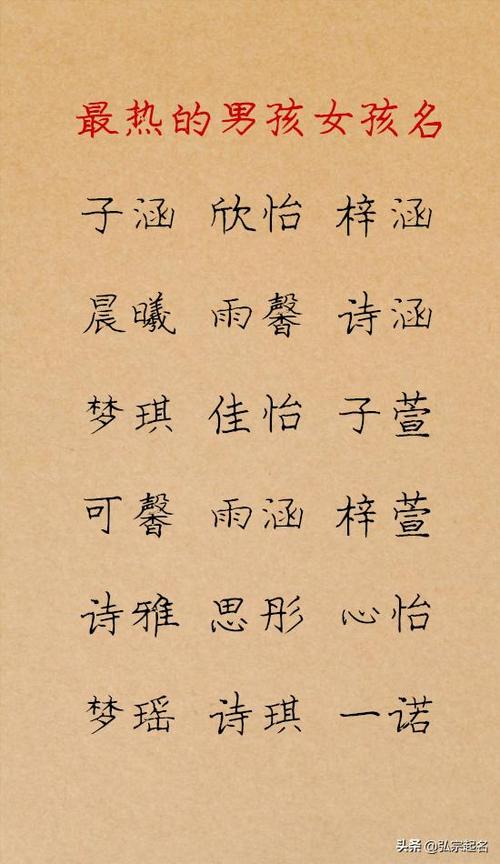 最热的男孩女孩名
子涵 欣怡 梓涵
晨曦 雨馨 诗涵
梦琪 佳怡 子萱
可馨 雨涵 梓萱
诗雅 思彤 心怡
梦瑶 诗琪 一诺
头条 @弘宗起名